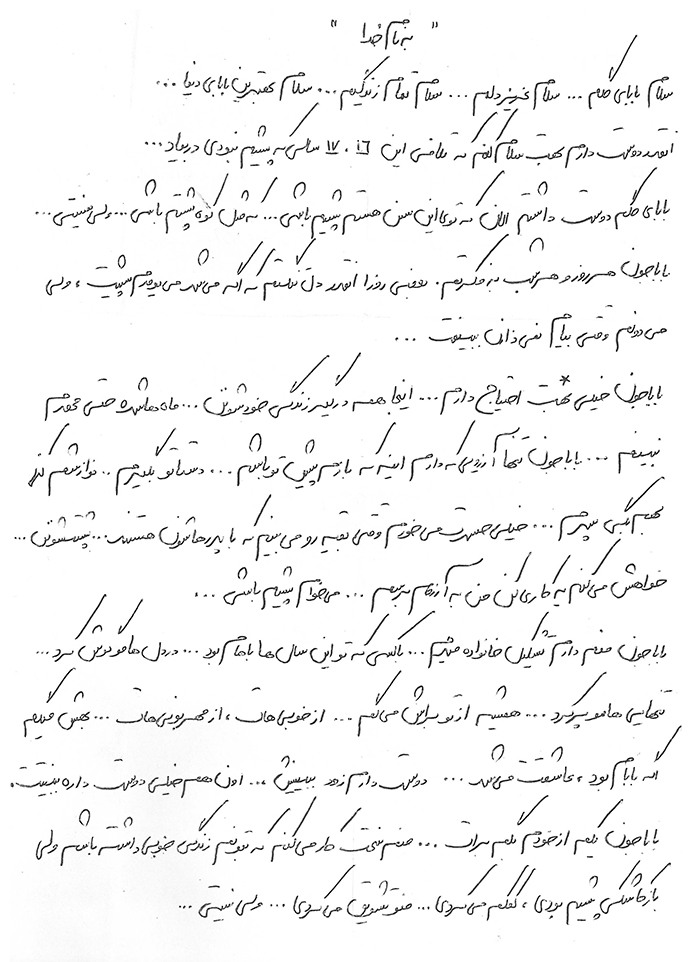 " به نام خدا "
سلام بابای گلم ... سلام عزیز دلم ... سلام تمام زندگیم ... سلام بهترین بابای دنیا ...
انقدر دوست دارم بهت سلام کنم که تلافی این ۱۶ ، ۱۷ سالی که پیشم نبودی دربیاد ...
بابای گلم دوست داشتم الان که توی این سن هستم پیشم باشی ... که مثل کوه پشتم باشی ... ولی نیستی ...
باباجون هر روز و هر شب به فکرتم . بعضی روزا انقدر دلتنگتم که اگه می‌شد می‌یومدم پیشت ، ولی
می‌دونم وقتی بیام نمی‌ذارن ببینمت ...
باباجون خیلی بهت احتیاج دارم ... اینجا همه درگیر زندگی خودشونن ... ماه‌ها شده حتی عموم
نبینم ... باباجون تنها آرزویی که دارم اینه که بازم پیش تو باشم ... دستاتو بگیرم .. نوازشم کنی
بهم بگی پسرم ... خیلی حسرت می‌خورم وقتی بقیه رو می‌بینم که با پدرهاشون هستند ... پشتشونن ...
خواهش می‌کنم یه کاری کن من به آرزوم برسم ... می‌خوام پیشم باشی ...
باباجون منم دارم تشکیل خانواده میدم ... با کسی که تو این سال‌ها باهام بود ... درد دل هامو گوش کرد ...
تنهایی هامو پر کرد ... همیشه از تو براش می‌گم ... از خوبی‌هات ، از مهربونی‌هات ... بهش میگم
اگه بابام بود ، عاشقت می‌شد ... دوست دارم زود ببینیش ... اون هم خیلی دوست داره ببینتت .
باباجون بگم از خودم بگم برات ... منم سخت کار می‌کنم که بتونم زندگی خوبی داشته باشم ولی
بازم کاشکی پیشم بودی ، کمکم می‌کردی ... منو تشویق می‌کردی ... ولی نیستی ...